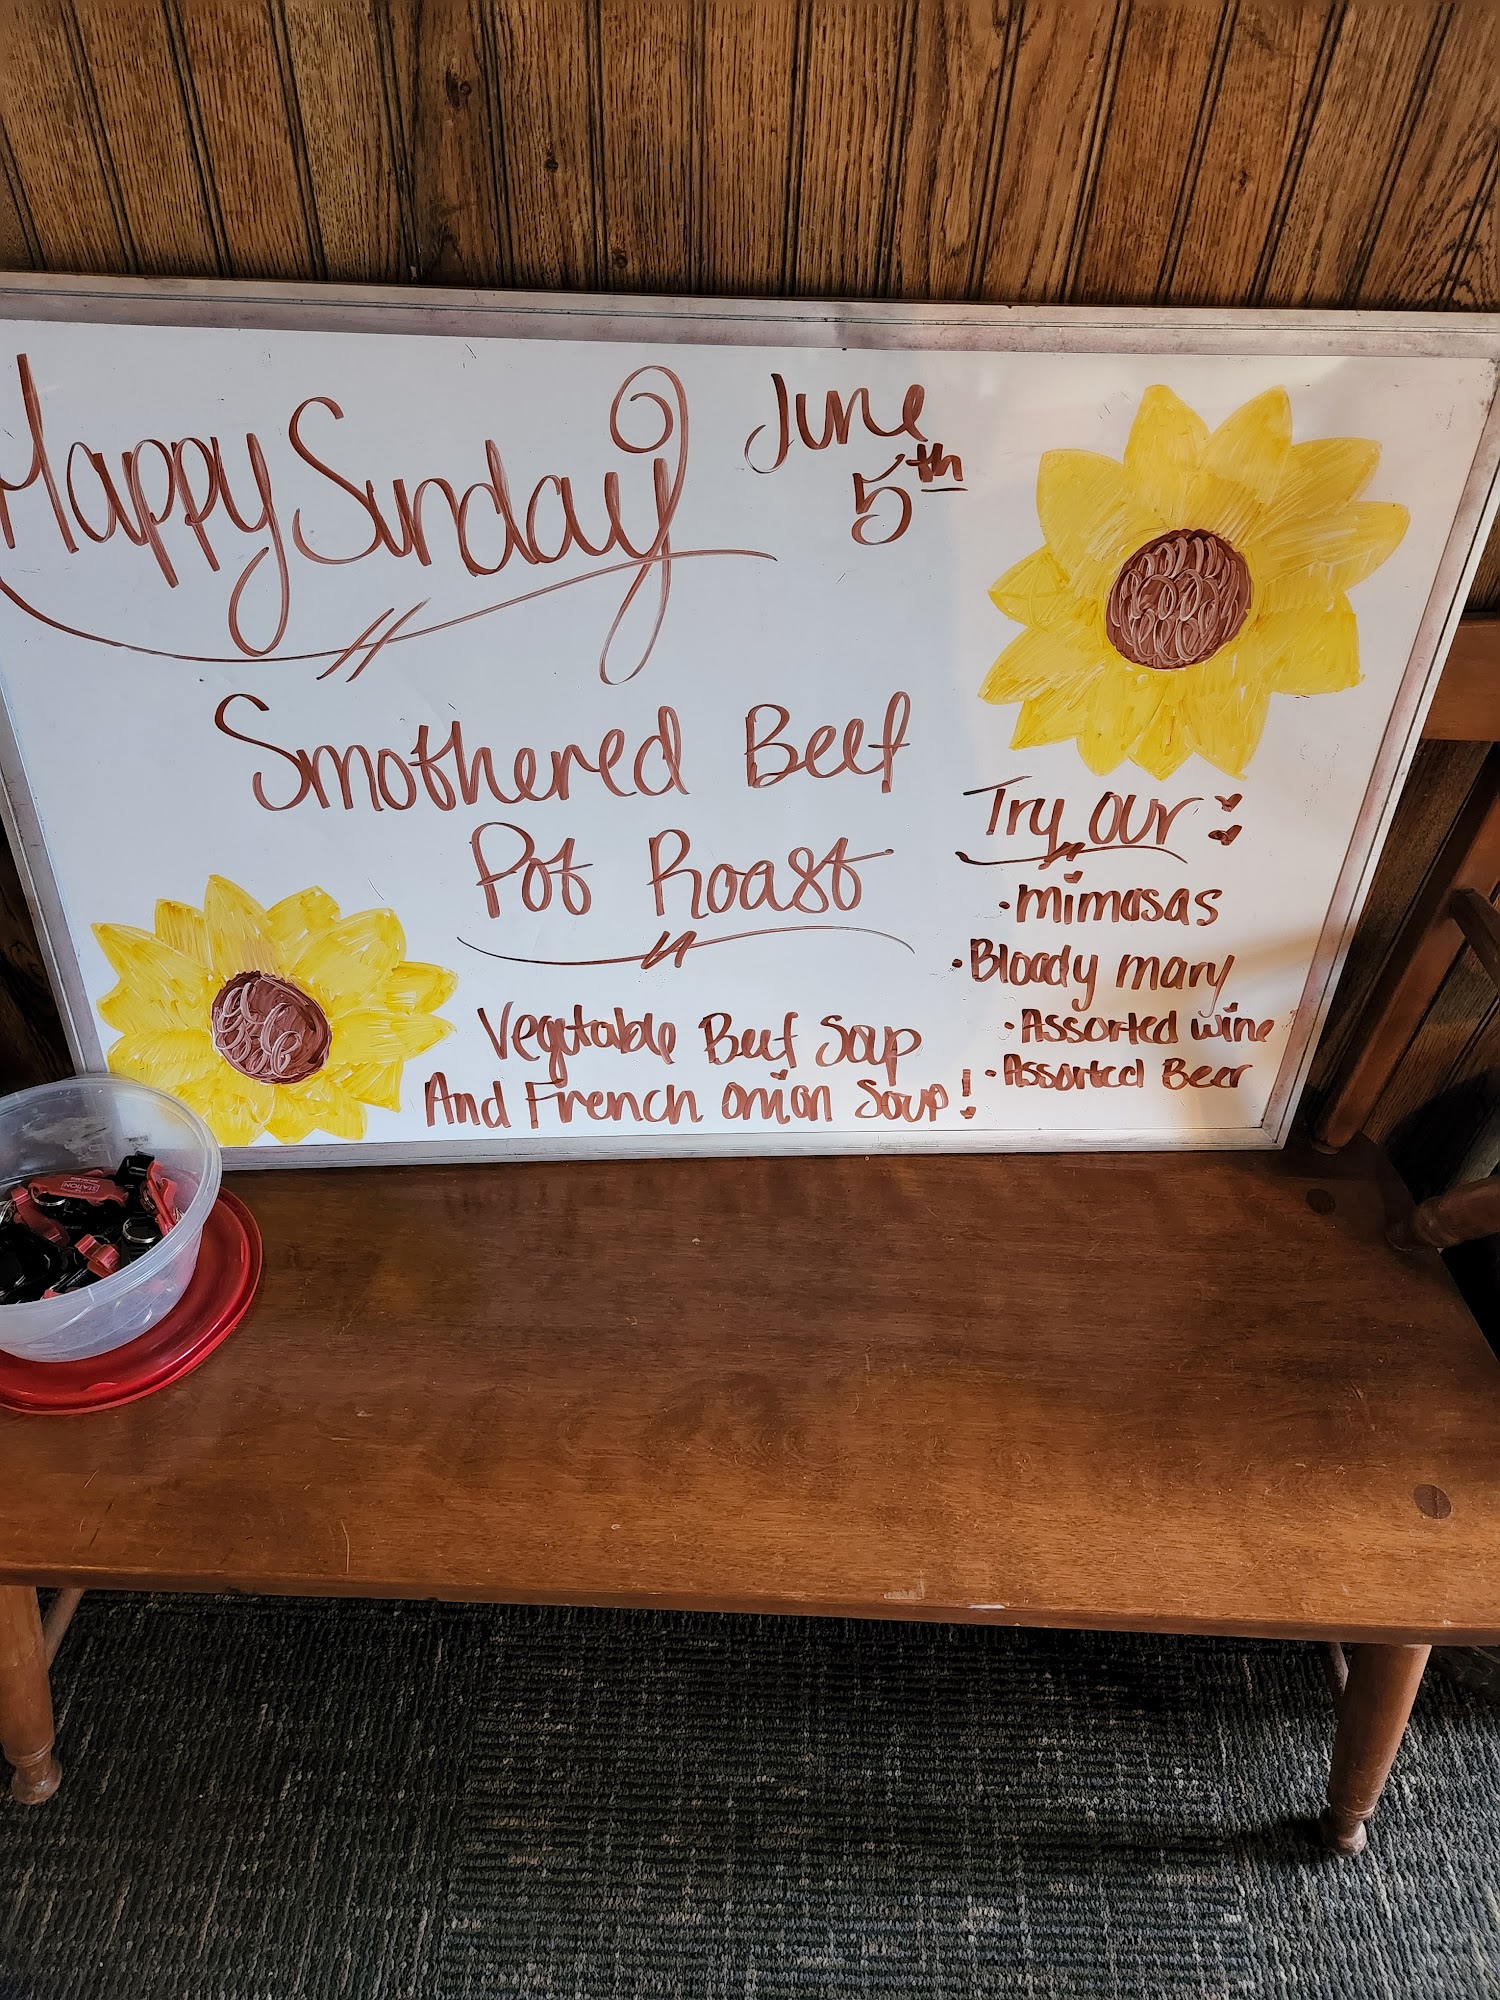 Happy Sunday
June
5th
Smothered Beef
Pot Roast
Vegetable Beef Soup
And French Onion Soup!
Try our:
• mimosas
• Bloody mary
• Assorted wine
• Assorted Beer
STATION